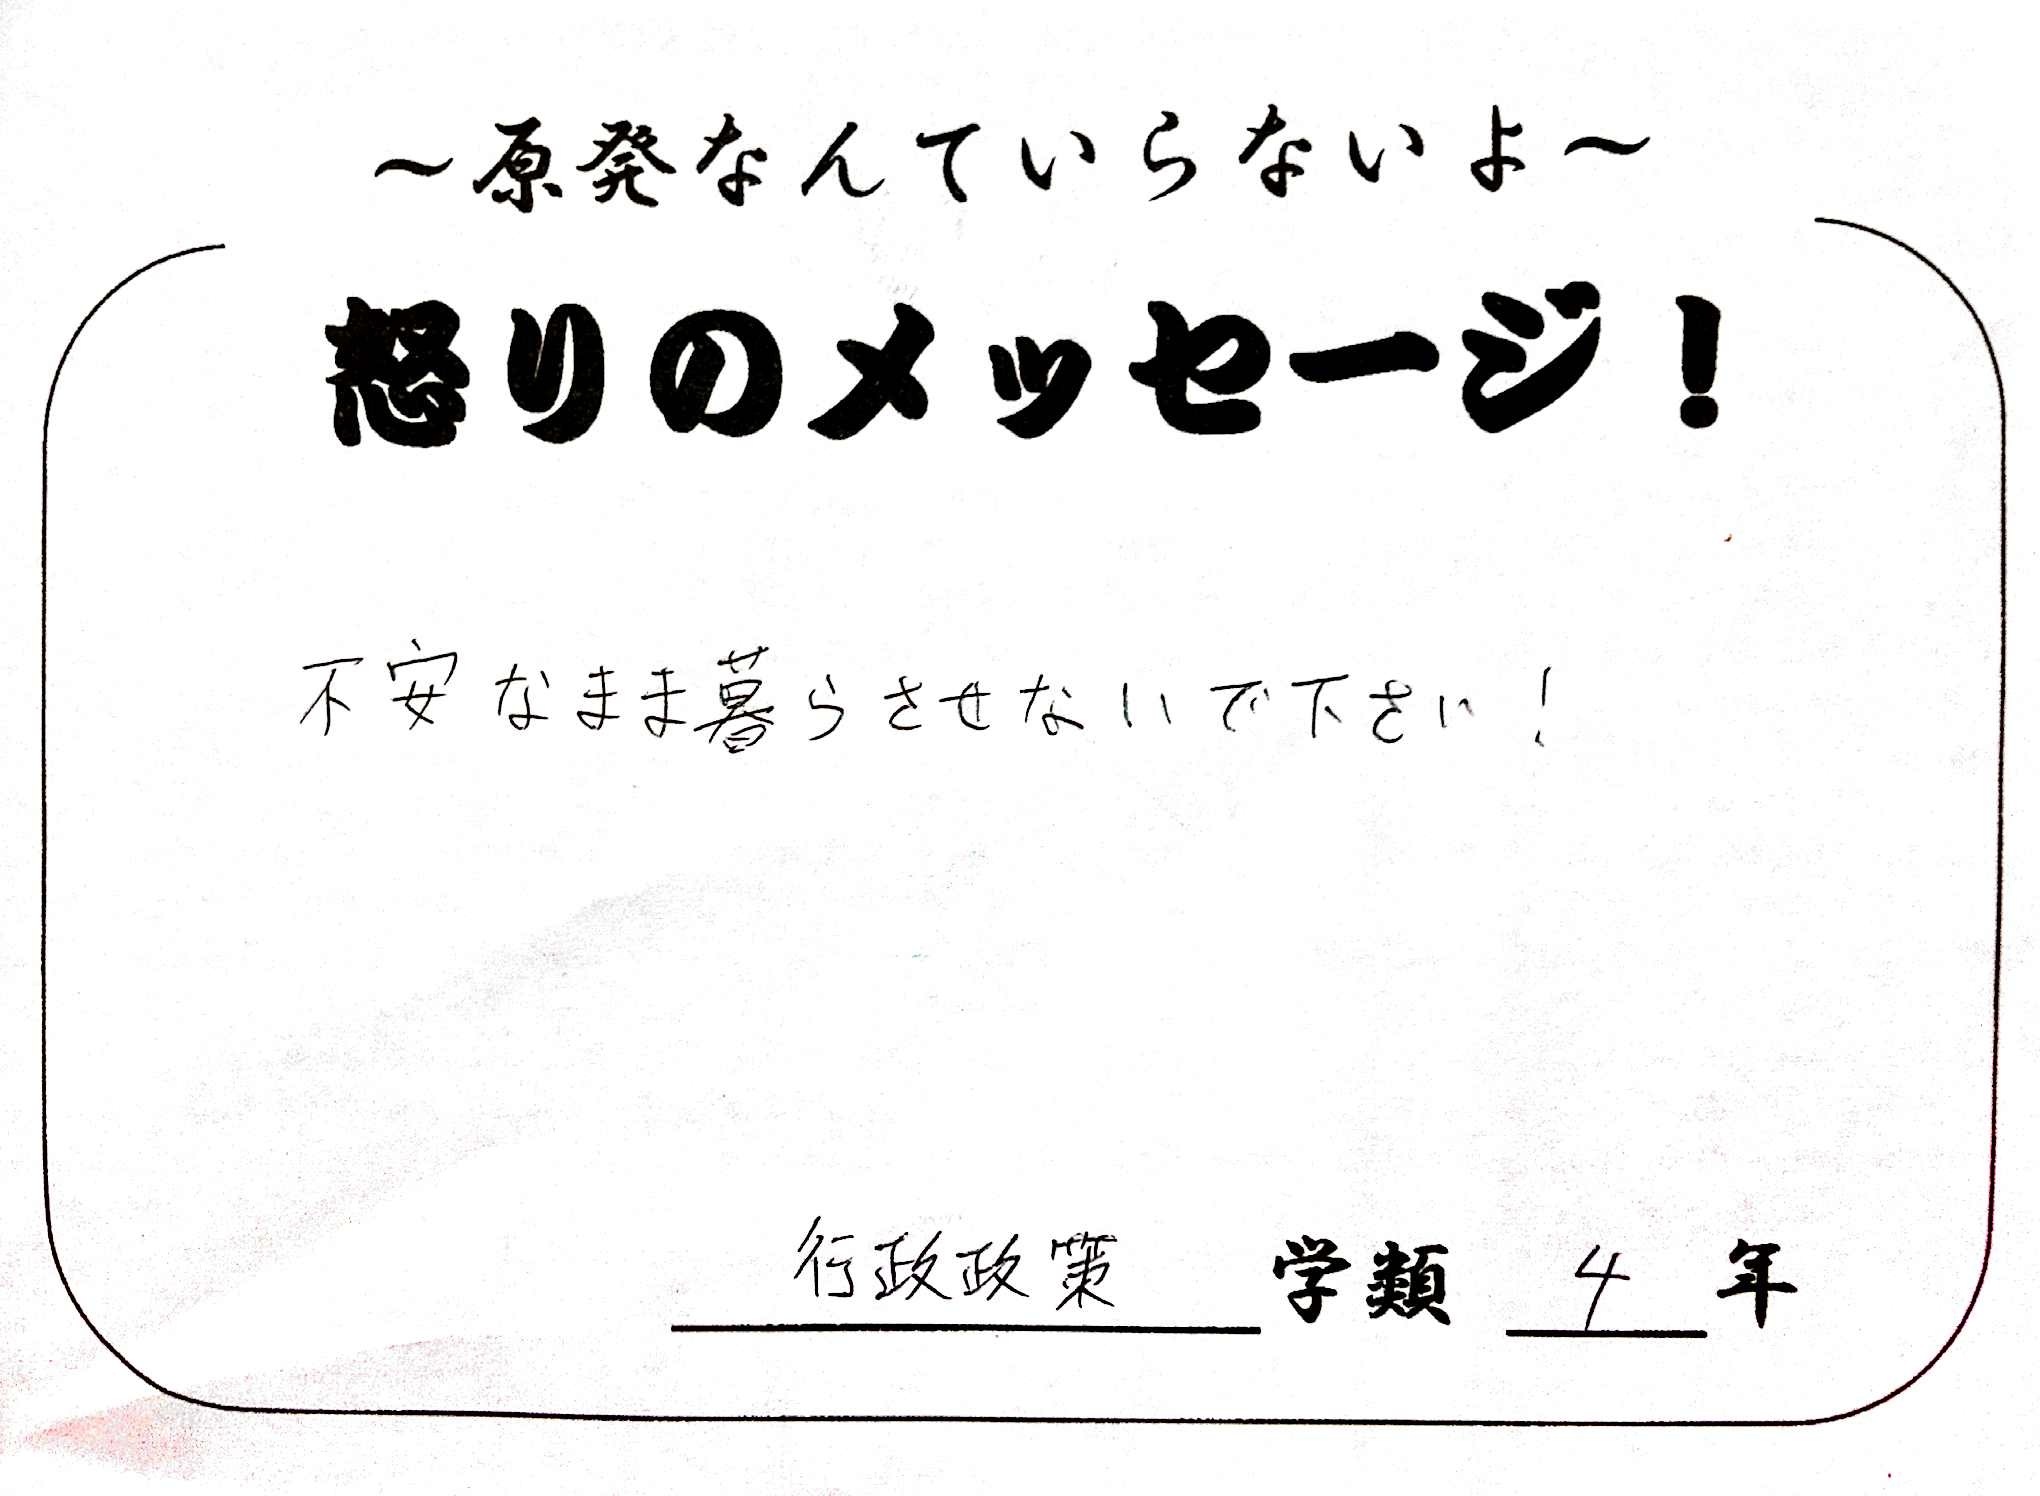 ～原発なんていらないよ～
怒りのメッセージ！
不安なまま暮らさせないで下さい！
行政政策 学類 4 年